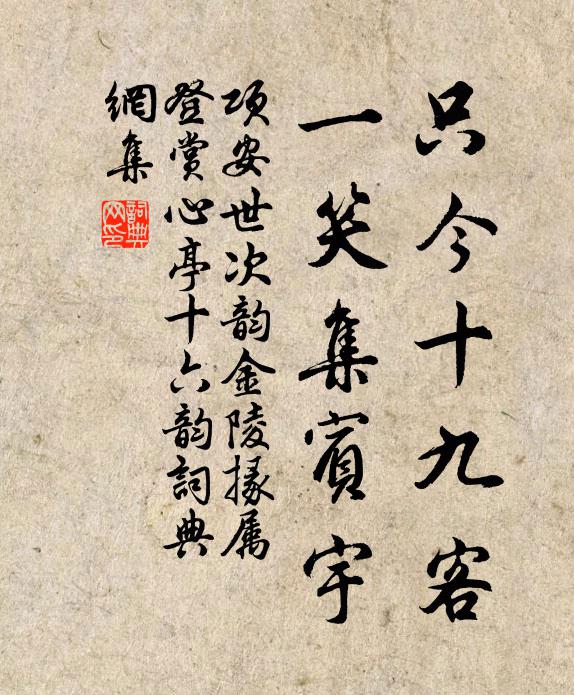 只今十九客
一笑集賓宇
項安世次韵金陵掾属
登賞心亭十六韵詞典
網集
詞典
网印